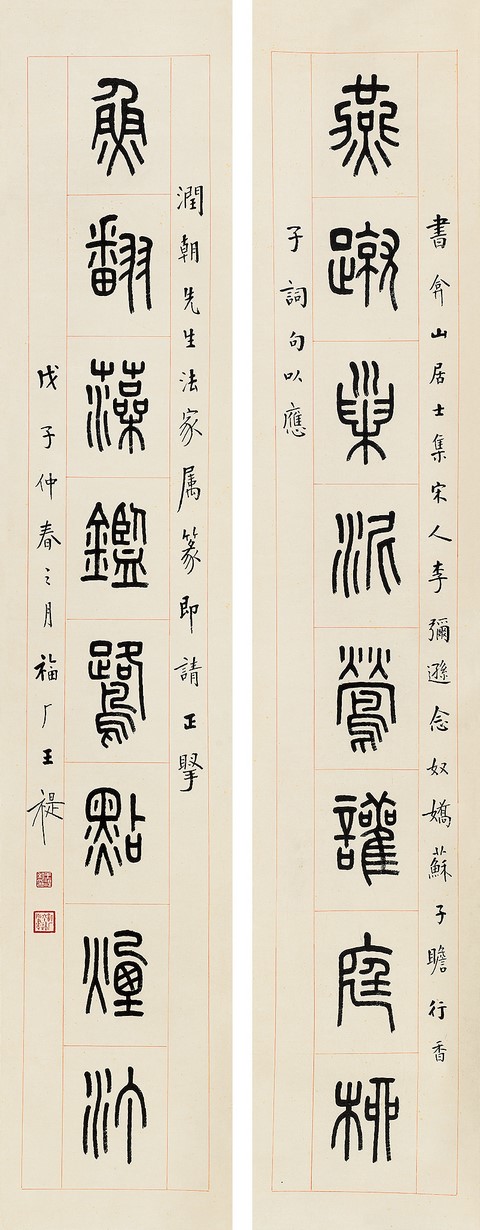 書弇山居士集宋人李彌遜念奴嬌蘇子瞻行香
燕蹴巢泥鶯讙庭柳
子詞句以應
潤朝先生法家属篆即請正掔
魚翻藻鑑鷺點煙汀
戊子仲春之月福厂王禔